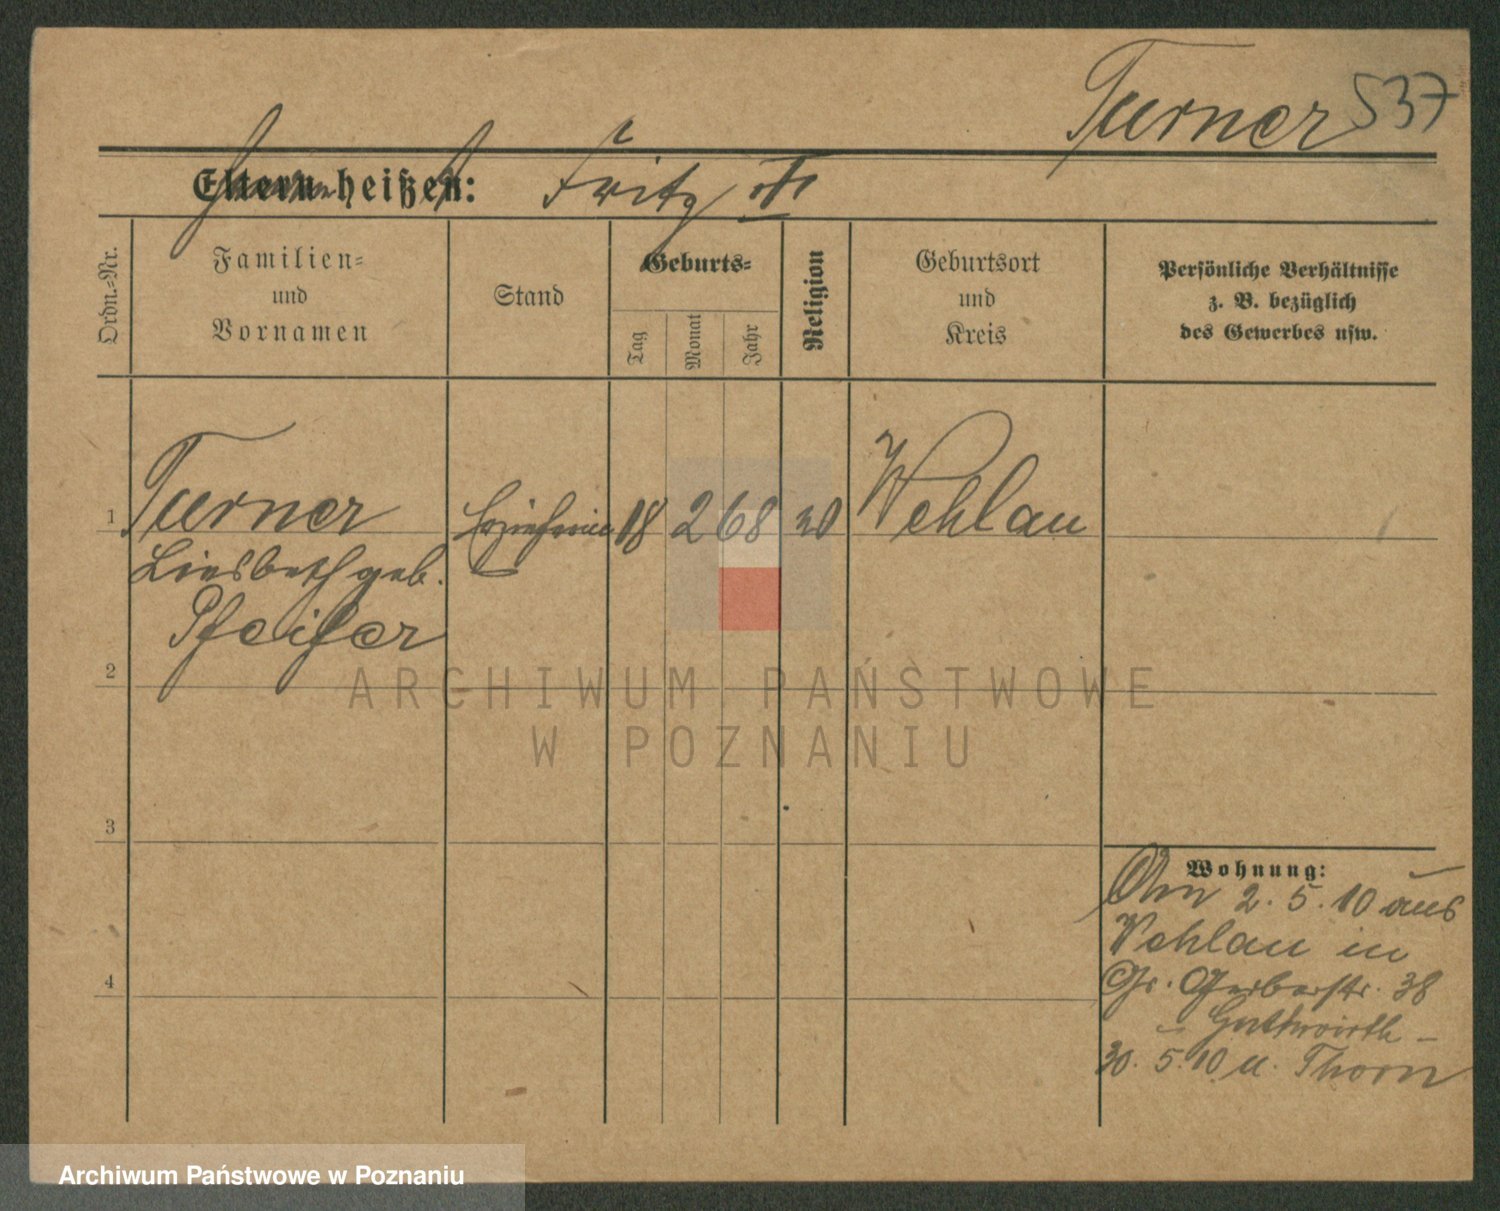 Turner 537
Eltern heißen: Fritz
Ordn.-Nr.
Familien-
und
Vornamen
Stand
Geburts-
Tag
Monat
Jahr
Religion
Geburtsort
und
Kreis
Persönliche Verhältnisse
z. B. bezüglich
des Gewerbes usw.
1 Turner 18 2 68 Wehlau
Liesbeth geb.
Pfeifer
2
3
4
Wohnung:
2. 5. 10 aus
Wehlau in
Gr. Gerberstr. 38
30. 5. 10 n. Thorn
ARCHIWUM PAŃSTWOWE
W POZNANIU
Archiwum Państwowe w Poznaniu